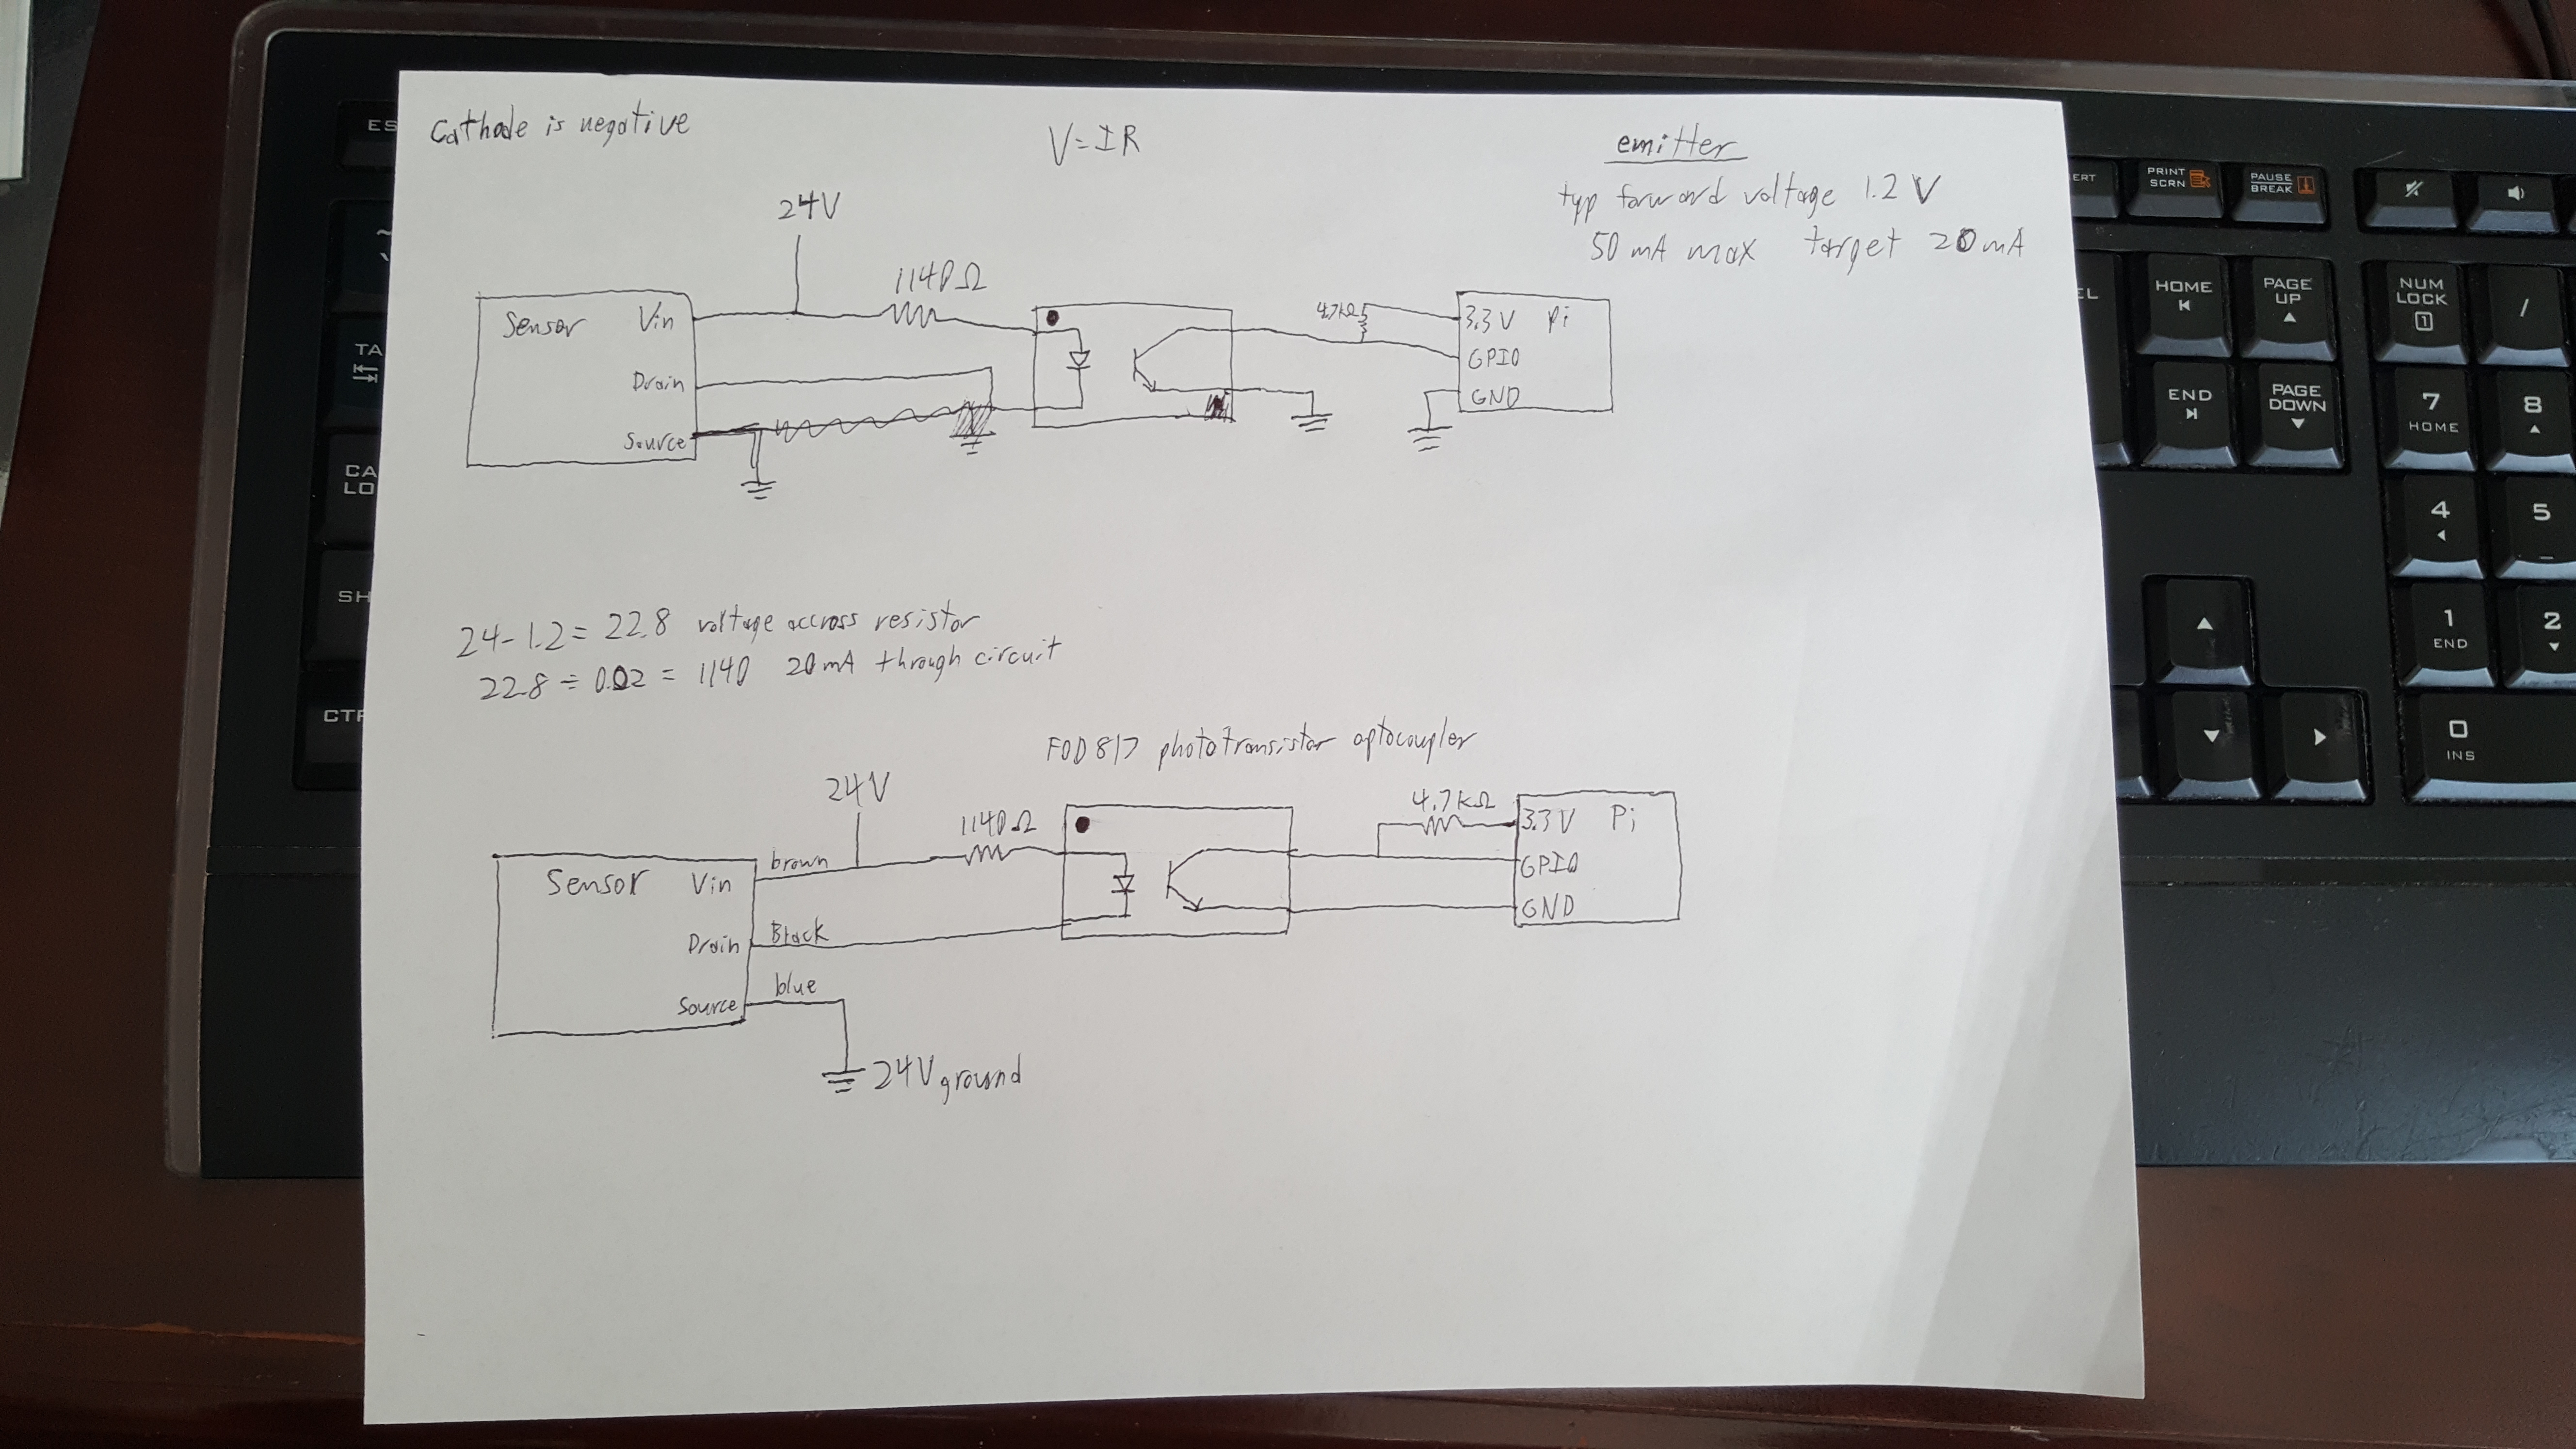 Cathode is negative
V=IR
emitter
typ forward voltage 1.2 V
50 mA max target 20 mA
24V
1140Ω
Sensor
Vin
Drain
Source
4.7kΩ
3.3V Pi
GPIO
GND
24-1.2= 22.8 voltage accross resistor
22.8 ÷ 0.02 = 1140 20mA through circuit
FOD817 phototransistor optocoupler
24V
1140Ω
4.7kΩ
brown
Sensor Vin
3.3V Pi
GPIO
GND
Drain
Black
blue
Source
24V ground
ES
TA
CA
LO
SH
CTR
ERT
PRINT
SCRN
PAUSE
BREAK
EL
HOME
PAGE
UP
NUM
LOCK
1
/
END
PAGE
DOWN
7
HOME
8
4
5
1
END
2
0
INS